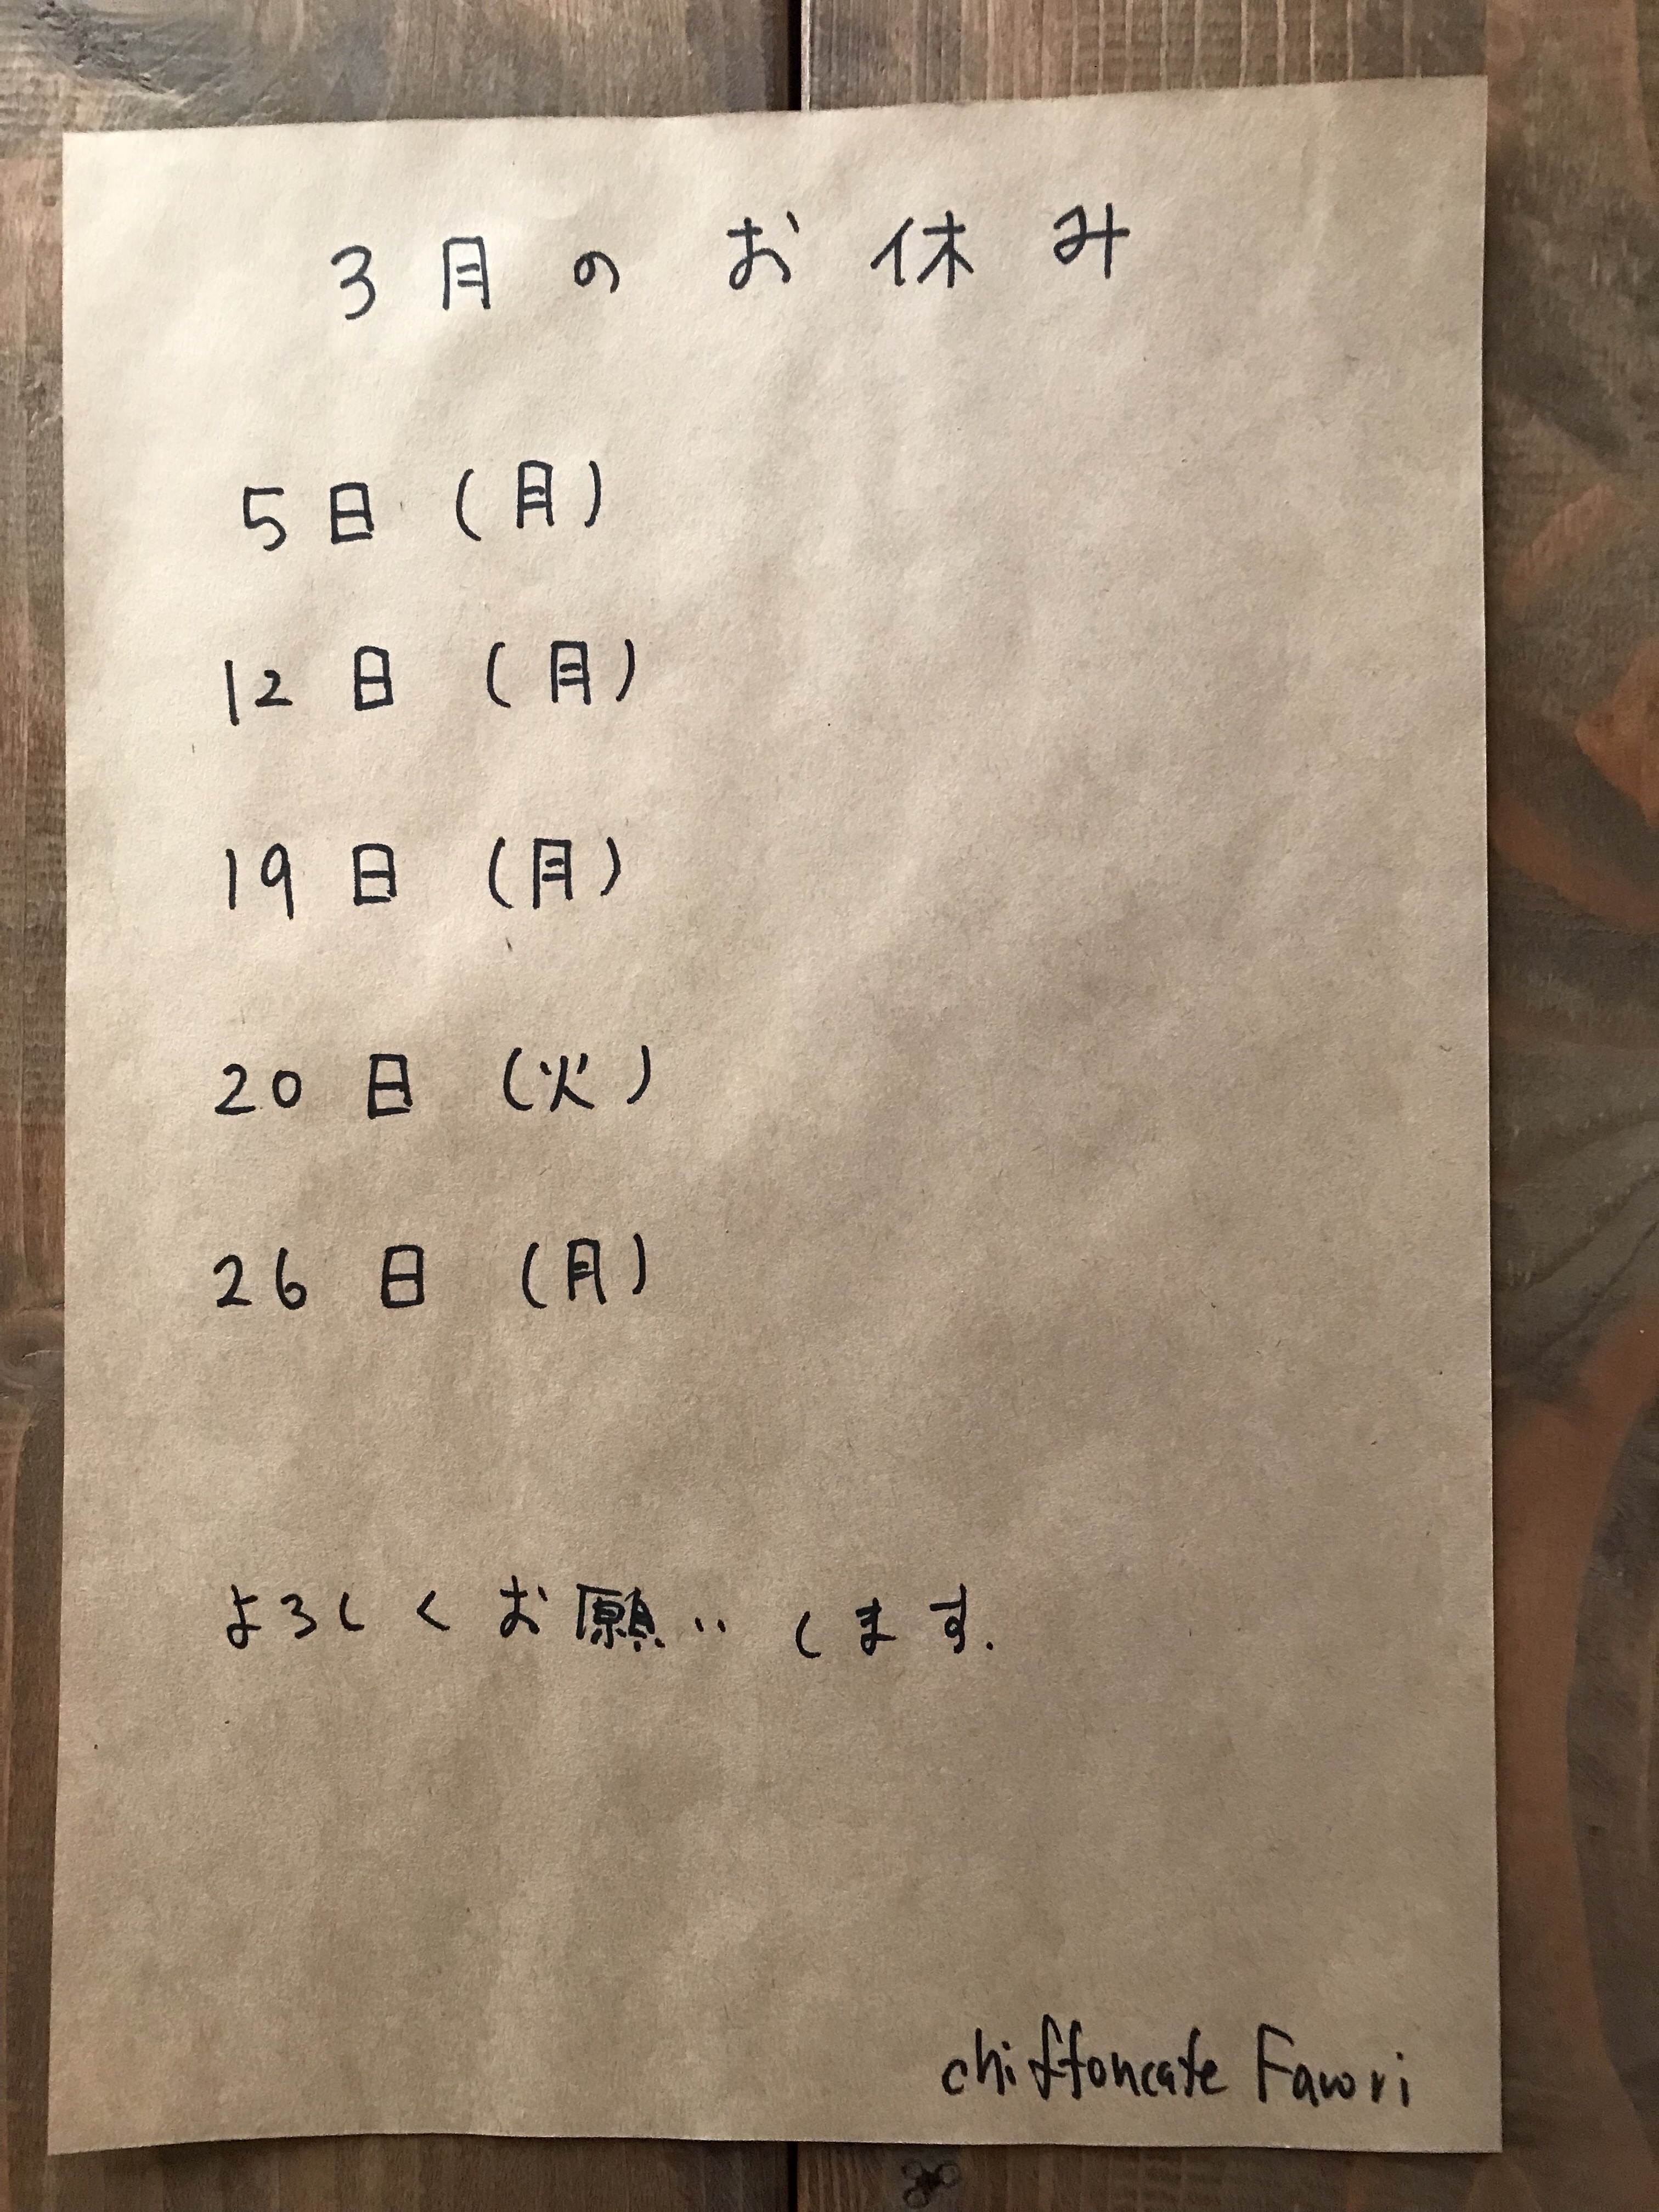 3月のお休み
5日（月）
12日（月）
19日（月）
20日（火）
26日（月）
よろしくお願いします.
chiffoncafe Favori